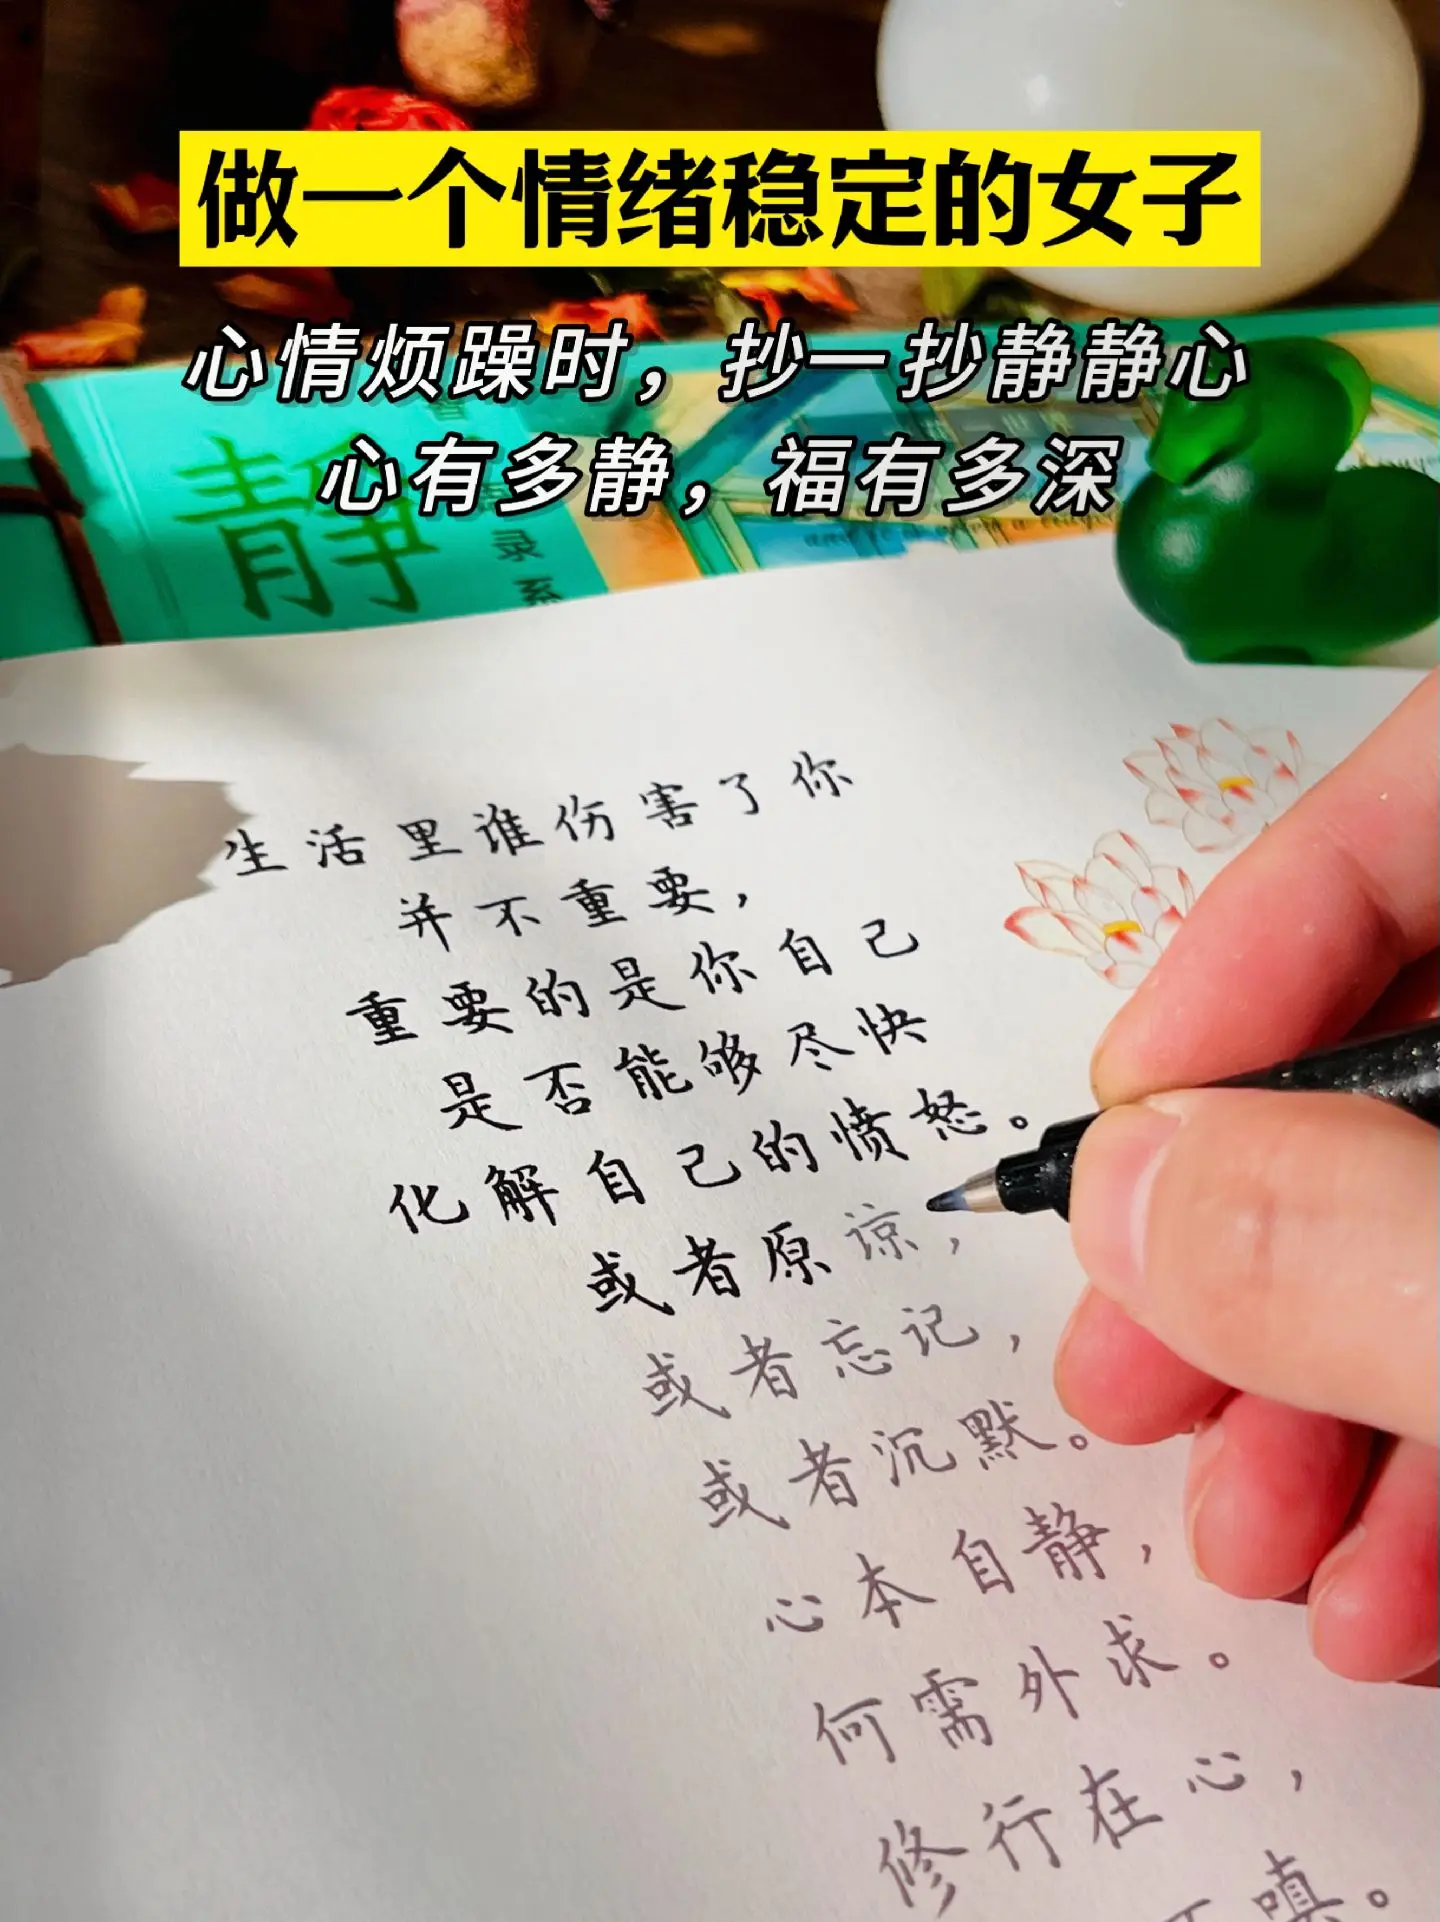 做一个情绪稳定的女子
心情烦躁时，抄一抄静静心
心有多静，福有多深
静
录系
生活里谁伤害了你
并不重要，
重要的是你自己
是否能够尽快
化解自己的愤怒。
或者原谅，
或者忘记，
或者沉默。
心本自静，
何需外求。
修行在心，
不嗔。